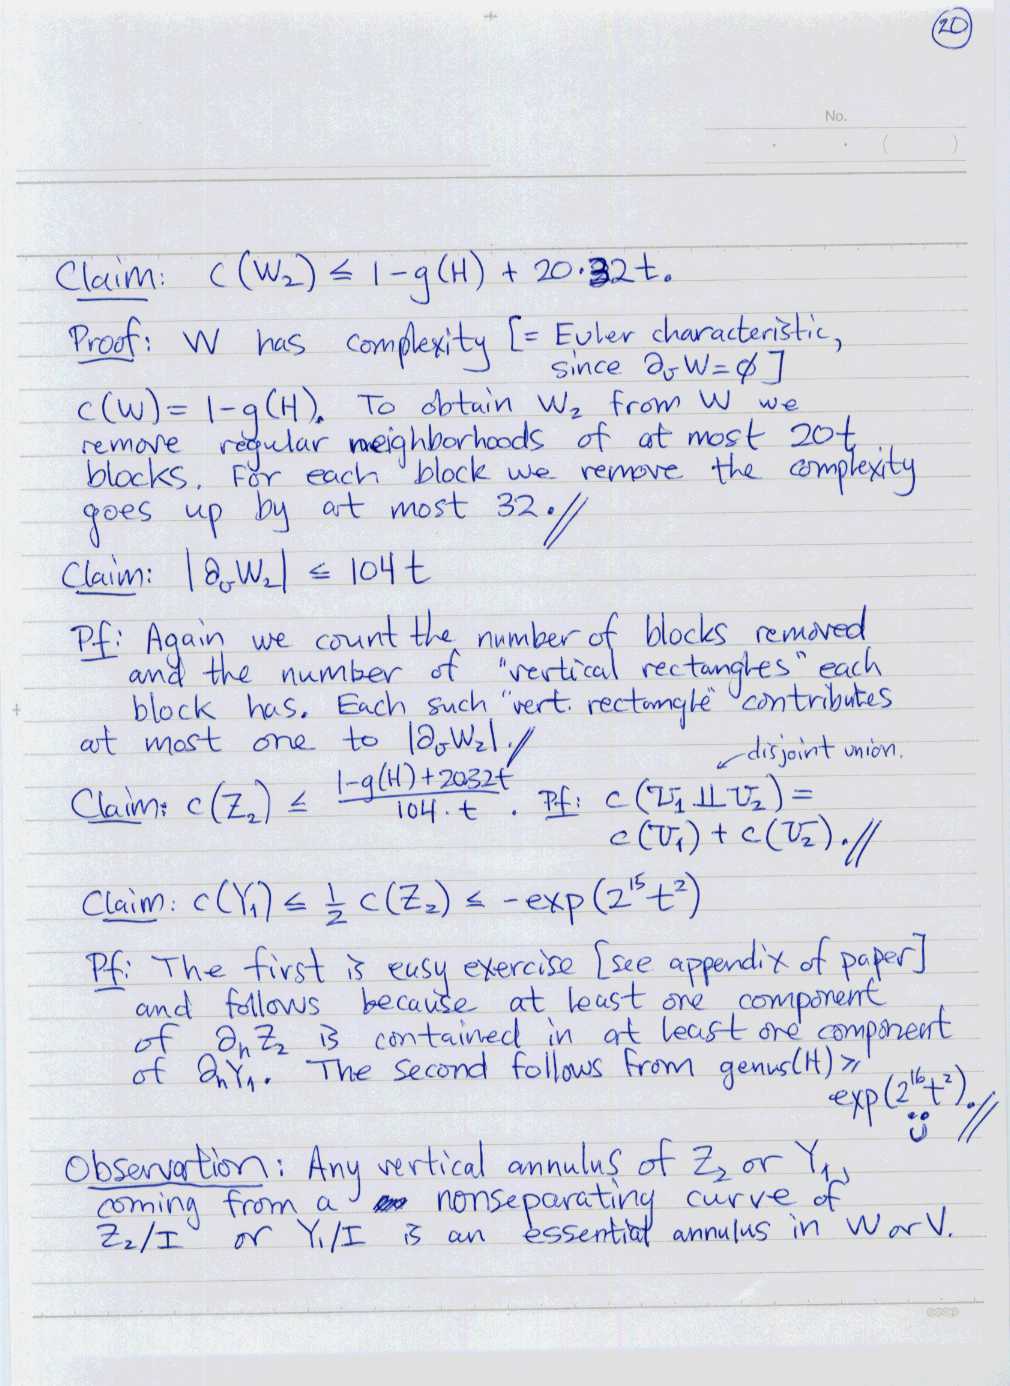 20
No.
( )
Claim: c(W₂) ≤ 1-g(H) + 20·32t.
Proof: W has complexity [= Euler characteristic,
since ∂ᵥW=∅]
c(W)= 1-g(H). To obtain W₂ from W we
remove regular neighborhoods of at most 20t
blocks. For each block we remove the complexity
goes up by at most 32.//
Claim: |∂ᵥW₂| ≤ 104t
Pf: Again we count the number of blocks removed
and the number of "vertical rectangles" each
block has. Each such "vert. rectangle" contributes
at most one to |∂ᵥW₂|.//
disjoint union.
Claim: c(Z₂) ≤ (1-g(H)+20·32t)/(104·t). Pf: c(U₁ ⊔ U₂) =
c(U₁) + c(U₂).//
Claim: c(Y₁) ≤ ½ c(Z₂) ≤ -exp(2¹⁵t²)
Pf: The first is easy exercise [see appendix of paper]
and follows because at least one component
of ∂ₕZ₂ is contained in at least one component
of ∂ₕY₁. The second follows from genus(H) ≥
exp(2¹⁶t²).//
Observation: Any vertical annulus of Z₂ or Y₁,
coming from a nonseparating curve of
Z₂/I or Y₁/I is an essential annulus in W or V.